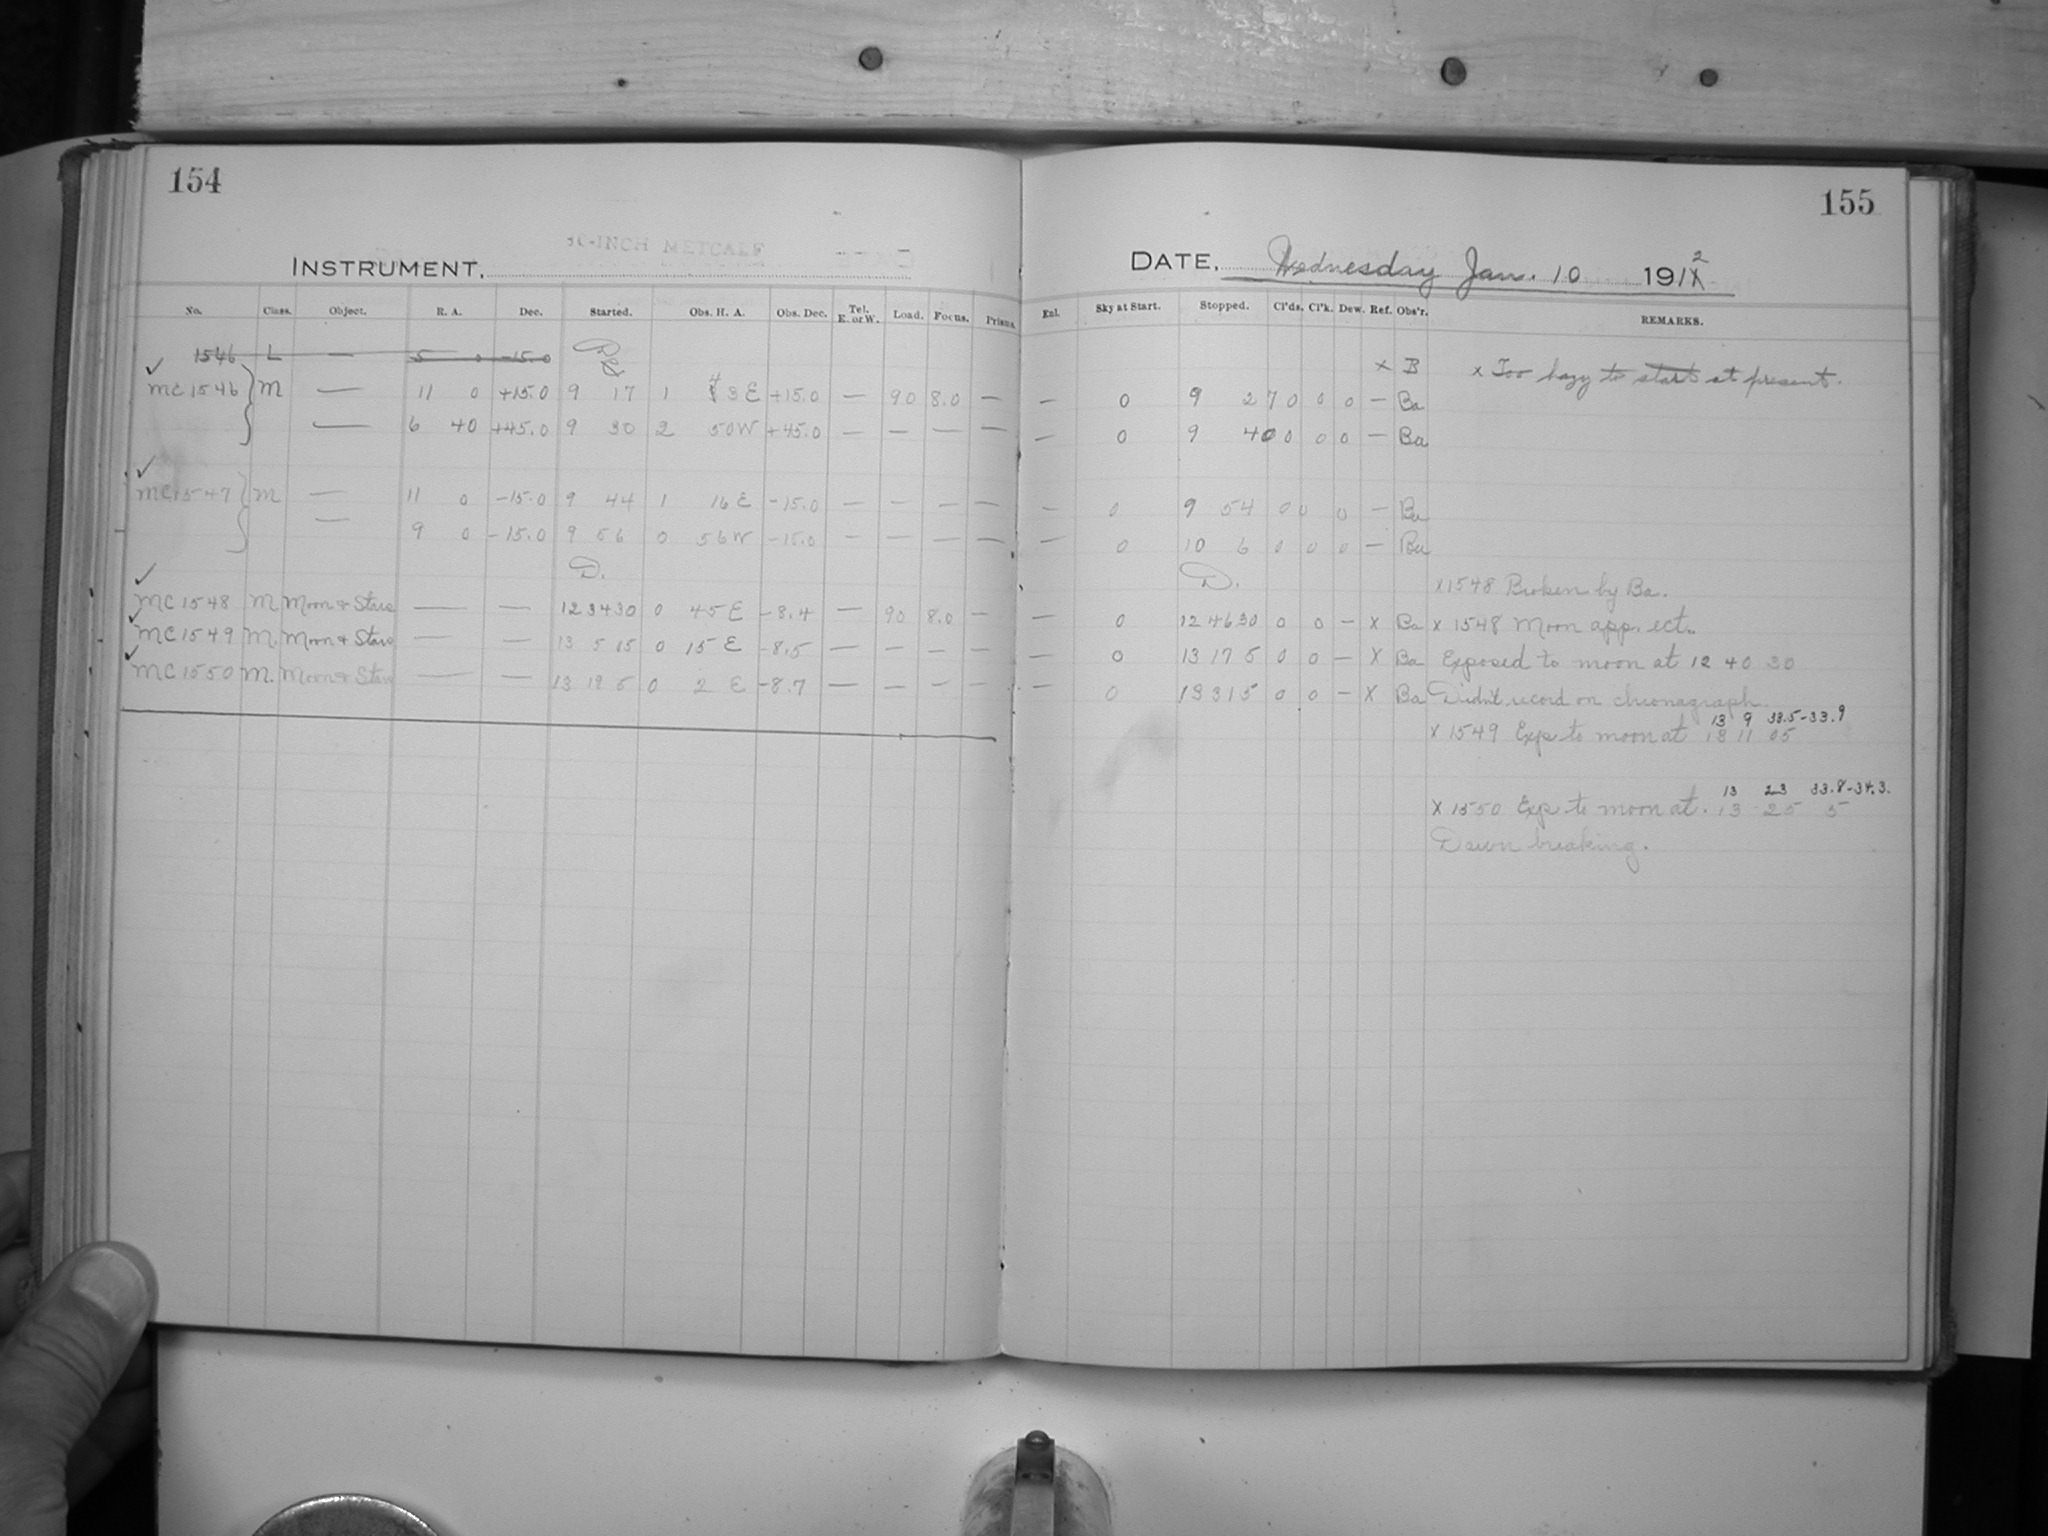 154
155
-INCH METCALF
INSTRUMENT,
DATE, Wednesday Jan. 10 191X 2
No. Class. Object. R. A. Dec. Started. Obs. H. A. Obs. Dec. Tel. E. or W. Load. Focus. Prisms. Enl. Sky at Start. Stopped. Cl'ds. Cl'k. Dew. Ref. Obs'r. REMARKS.
1546 L — 5 0 -15.0 D x B x Too hazy to start at present.
✓ MC 1546 M — 11 0 +15.0 9 17 1 4 3 E +15.0 — 90 8.0 — — 0 9 27 0 0 0 — Ba
— 6 40 +45.0 9 30 2 50 W +45.0 — — — — — 0 9 40 0 0 0 — Ba
✓ MC 1547 M — 11 0 -15.0 9 44 1 16 E -15.0 — — — — — 0 9 54 0 0 0 — Ba
— 9 0 -15.0 9 56 0 56 W -15.0 — — — — — 0 10 6 0 0 0 — Ba
D. D. x 1548 Broken by Ba.
✓ MC 1548 M. Moon & Stars — — 12 34 30 0 45 E -8.4 — 90 8.0 — — 0 12 46 30 0 0 — X Ba x 1548 Moon app. ect..
✓ MC 1549 M. Moon & Stars — — 13 5 15 0 15 E -8.5 — — — — — 0 13 17 5 0 0 — X Ba Exposed to moon at 12 40 30
✓ MC 1550 M. Moon & Stars — — 13 19 5 0 2 E -8.7 — — — — — 0 13 31 5 0 0 — X Ba Didn't record on chronagraph.
13 9 33.5-33.9
x 1549 Exp to moon at 13 11 05
13 23 33.8-34.3.
X 1550 Exp to moon at. 13 25 5
Dawn breaking.